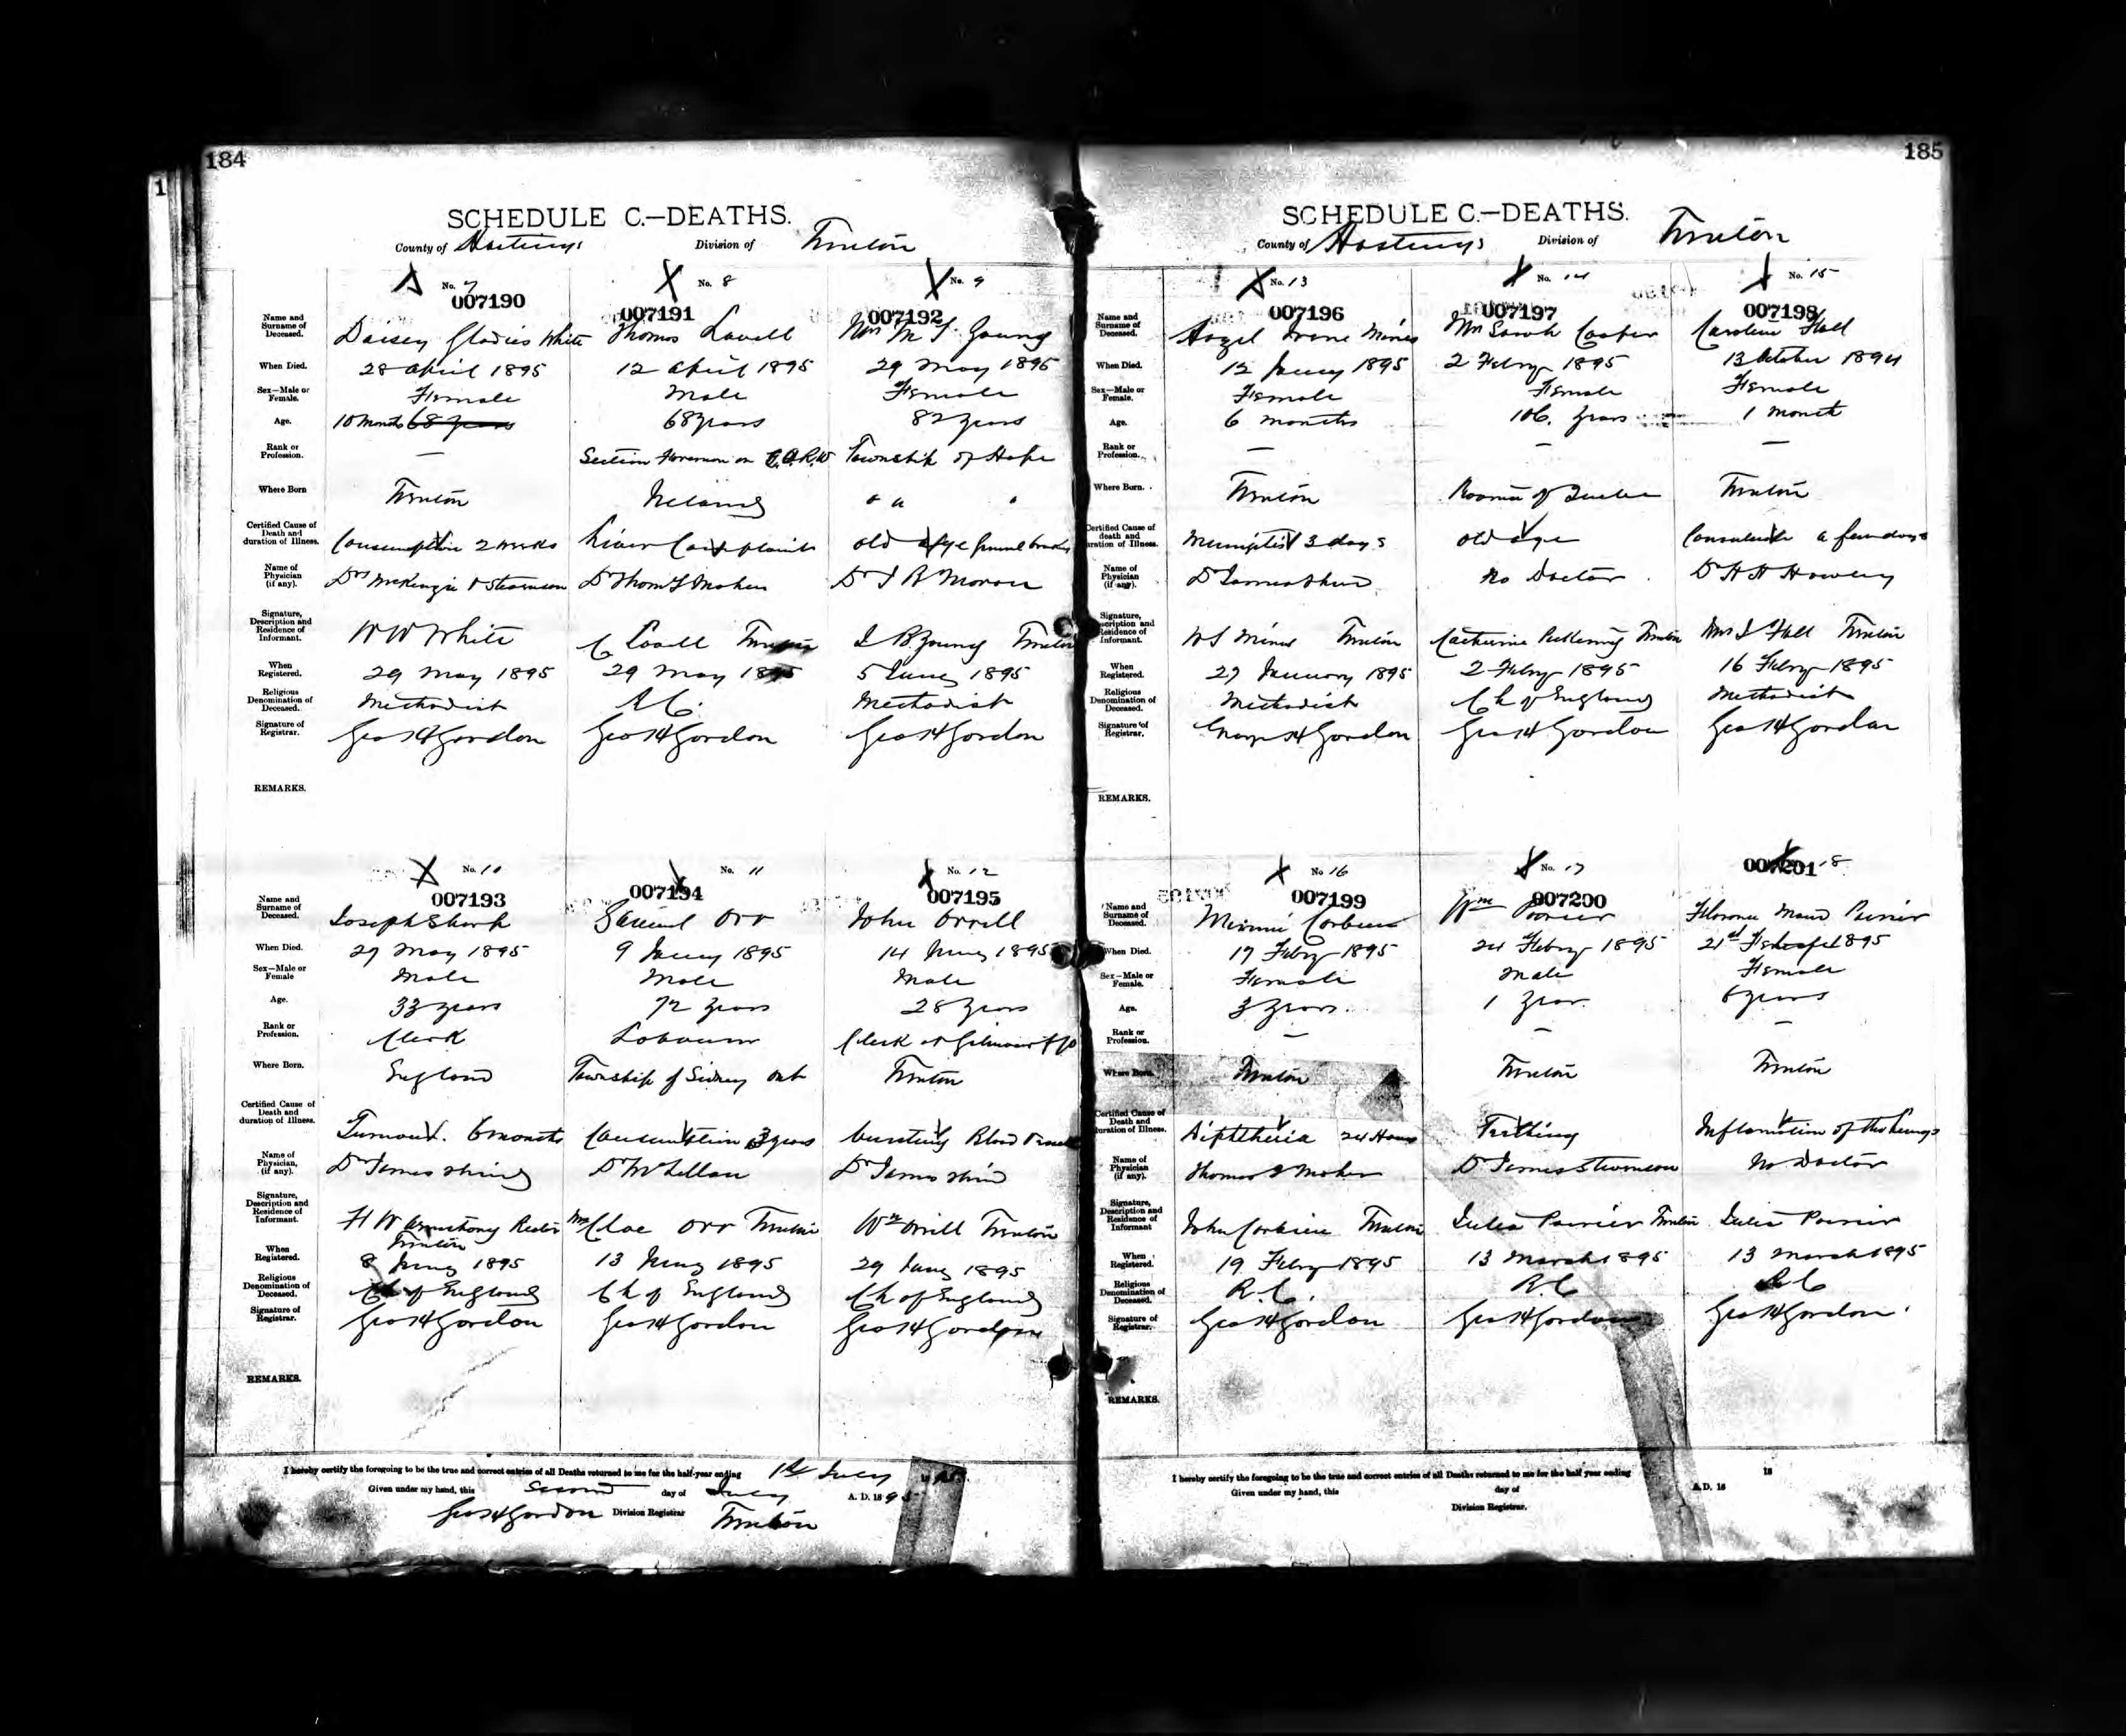 184
1
SCHEDULE C.—DEATHS.
County of Hastings Division of Trenton
No. 7 No. 8 No. 9
007190 007191 007192
Name and Surname of Deceased. Daisey Gladies White Thomas Lavell Mrs M Young
When Died. 28 April 1895 12 April 1895 29 May 1895
Sex—Male or Female. Female Male Female
Age. 10 months 68 years 68 years 82 years
Rank or Profession. — Section Foreman on Township of Hope
Where Born Trenton Ireland " " "
Certified Cause of Death and duration of Illness. Consumption 2 weeks Liver Complaint old age
Name of Physician (if any). Drs McKenzie & Stevenson Dr Moher Dr Morrow
Signature, Description and Residence of Informant. W W White C Lavell Trenton Young Trenton
When Registered. 29 May 1895 29 May 1895 5 June 1895
Religious Denomination of Deceased. Methodist R C. Methodist
Signature of Registrar. Geo H Gordon Geo H Gordon Geo H Gordon
REMARKS.
No. 10 No. 11 No. 12
007193 007194 007195
Name and Surname of Deceased. Joseph Shark Samuel Orr John Orrell
When Died. 27 May 1895 9 1895 14 1895
Sex—Male or Female Male Male Male
Age. 33 years 72 years 28 years
Rank or Profession. Clerk Labourer Clerk at Gilmour & Co
Where Born. England Township of Sidney Ont Trenton
Certified Cause of Death and duration of Illness. Tumour. 6 months Consumption 3 years bursting Blood Vessel
Name of Physician, (if any). Dr James Dr McLellan Dr James
Signature, Description and Residence of Informant. H W Armstrong Trenton Mrs Cloe Orr Trenton Wm Orrill Trenton
When Registered. 8 June 1895 13 1895 29 1895
Religious Denomination of Deceased. Ch of England Ch of England Ch of England
Signature of Registrar. Geo H Gordon Geo H Gordon Geo H Gordon
REMARKS.
I hereby certify the foregoing to be the true and correct entries of all Deaths returned to me for the half-year ending 1st July 1895.
Given under my hand, this Second day of July A. D. 1895
Geo H Gordon Division Registrar Trenton
185
SCHEDULE C.—DEATHS.
County of Hastings Division of Trenton
No. 13 No. 14 No. 15
007196 007197 007198
Name and Surname of Deceased. Hazel Irene Mines Mrs Sarah Cooper Caroline Hall
When Died. 12 1895 2 Febry 1895 13 October 1894
Sex—Male or Female. Female Female Female
Age. 6 months 106 years 1 month
Rank or Profession. — — —
Where Born. Trenton Trenton
Certified Cause of death and duration of Illness. 3 days old age a few days
Name of Physician (if any). Dr James no Doctor Dr H H
Signature, Description and Residence of Informant. Trenton Catherine Pickering Trenton Mrs Hall Trenton
When Registered. 27 January 1895 2 Febry 1895 16 Febry 1895
Religious Denomination of Deceased. Methodist Ch of England Methodist
Signature of Registrar. George H Gordon Geo H Gordon Geo H Gordon
REMARKS.
No 16 No. 17 18
007199 007200 007201
Name and Surname of Deceased. Minnie Corbiere Wm Poirier Florence Maud Poirier
When Died. 17 Febry 1895 24 Febry 1895 21st 1895
Sex—Male or Female. Female Male Female
Age. 3 years. 1 year. 6 years
Rank or Profession. — — —
Where Born. Trenton Trenton Trenton
Certified Cause of Death and duration of Illness. Diphtheria 24 Hours Teething Inflamation of the Lungs
Name of Physician (if any). Thomas Moher Dr James Stevenson No Doctor
Signature, Description and Residence of Informant John Corbiere Trenton Julia Poirier Trenton Julia Poirier
When Registered. 19 Febry 1895 13 March 1895 13 March 1895
Religious Denomination of Deceased. R. C. R.C R C
Signature of Registrar. Geo H Gordon Geo H Gordon Geo H Gordon
REMARKS.
I hereby certify the foregoing to be the true and correct entries of all Deaths returned to me for the half year ending 18
Given under my hand, this day of A.D. 18
Division Registrar.